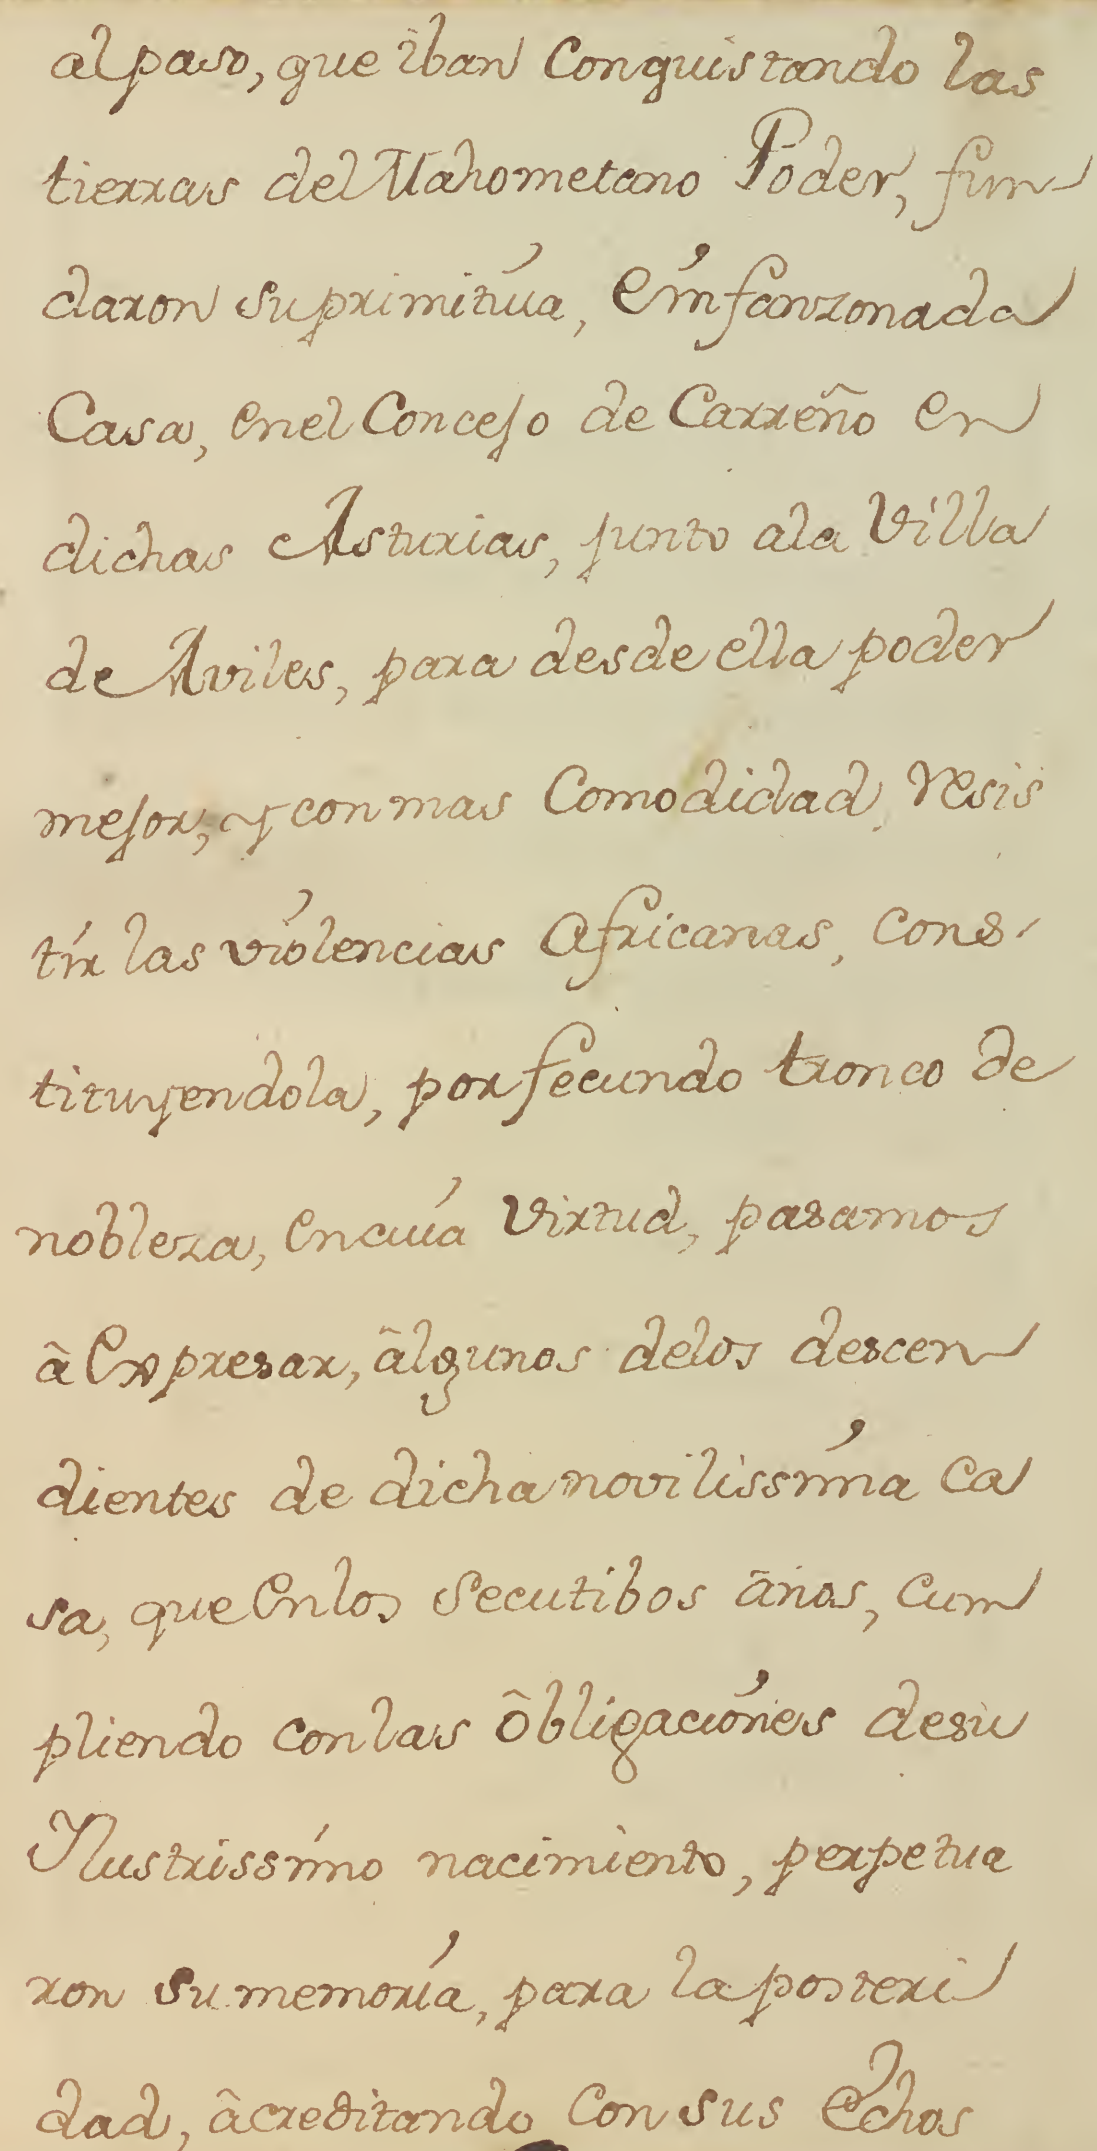 al paso, que îban Conquistando las
tierras del Mahometano Poder, fun
daron su primitiúa, é infanzonada
Casa, en el Concejo de Carreño en
dichas Asturias, junto ala Villa
de Aviles, para desde ella poder
mejor, y con mas Comodidad, resis
tír las violencias Africanas, cons-
tituyendola, por fecundo tronco de
nobleza, en cuía Virtud, pasamos
â Expresar, âlgunos delos descen
dientes de dicha novilissíma Ca
sa, que En los Secutibos años, Cum
pliendo con las ôbligaciónes desu
Ilustrissímo nacimiento, perpetua
ron su memoría, para la posteri
dad, âcreditando Con sus Echos